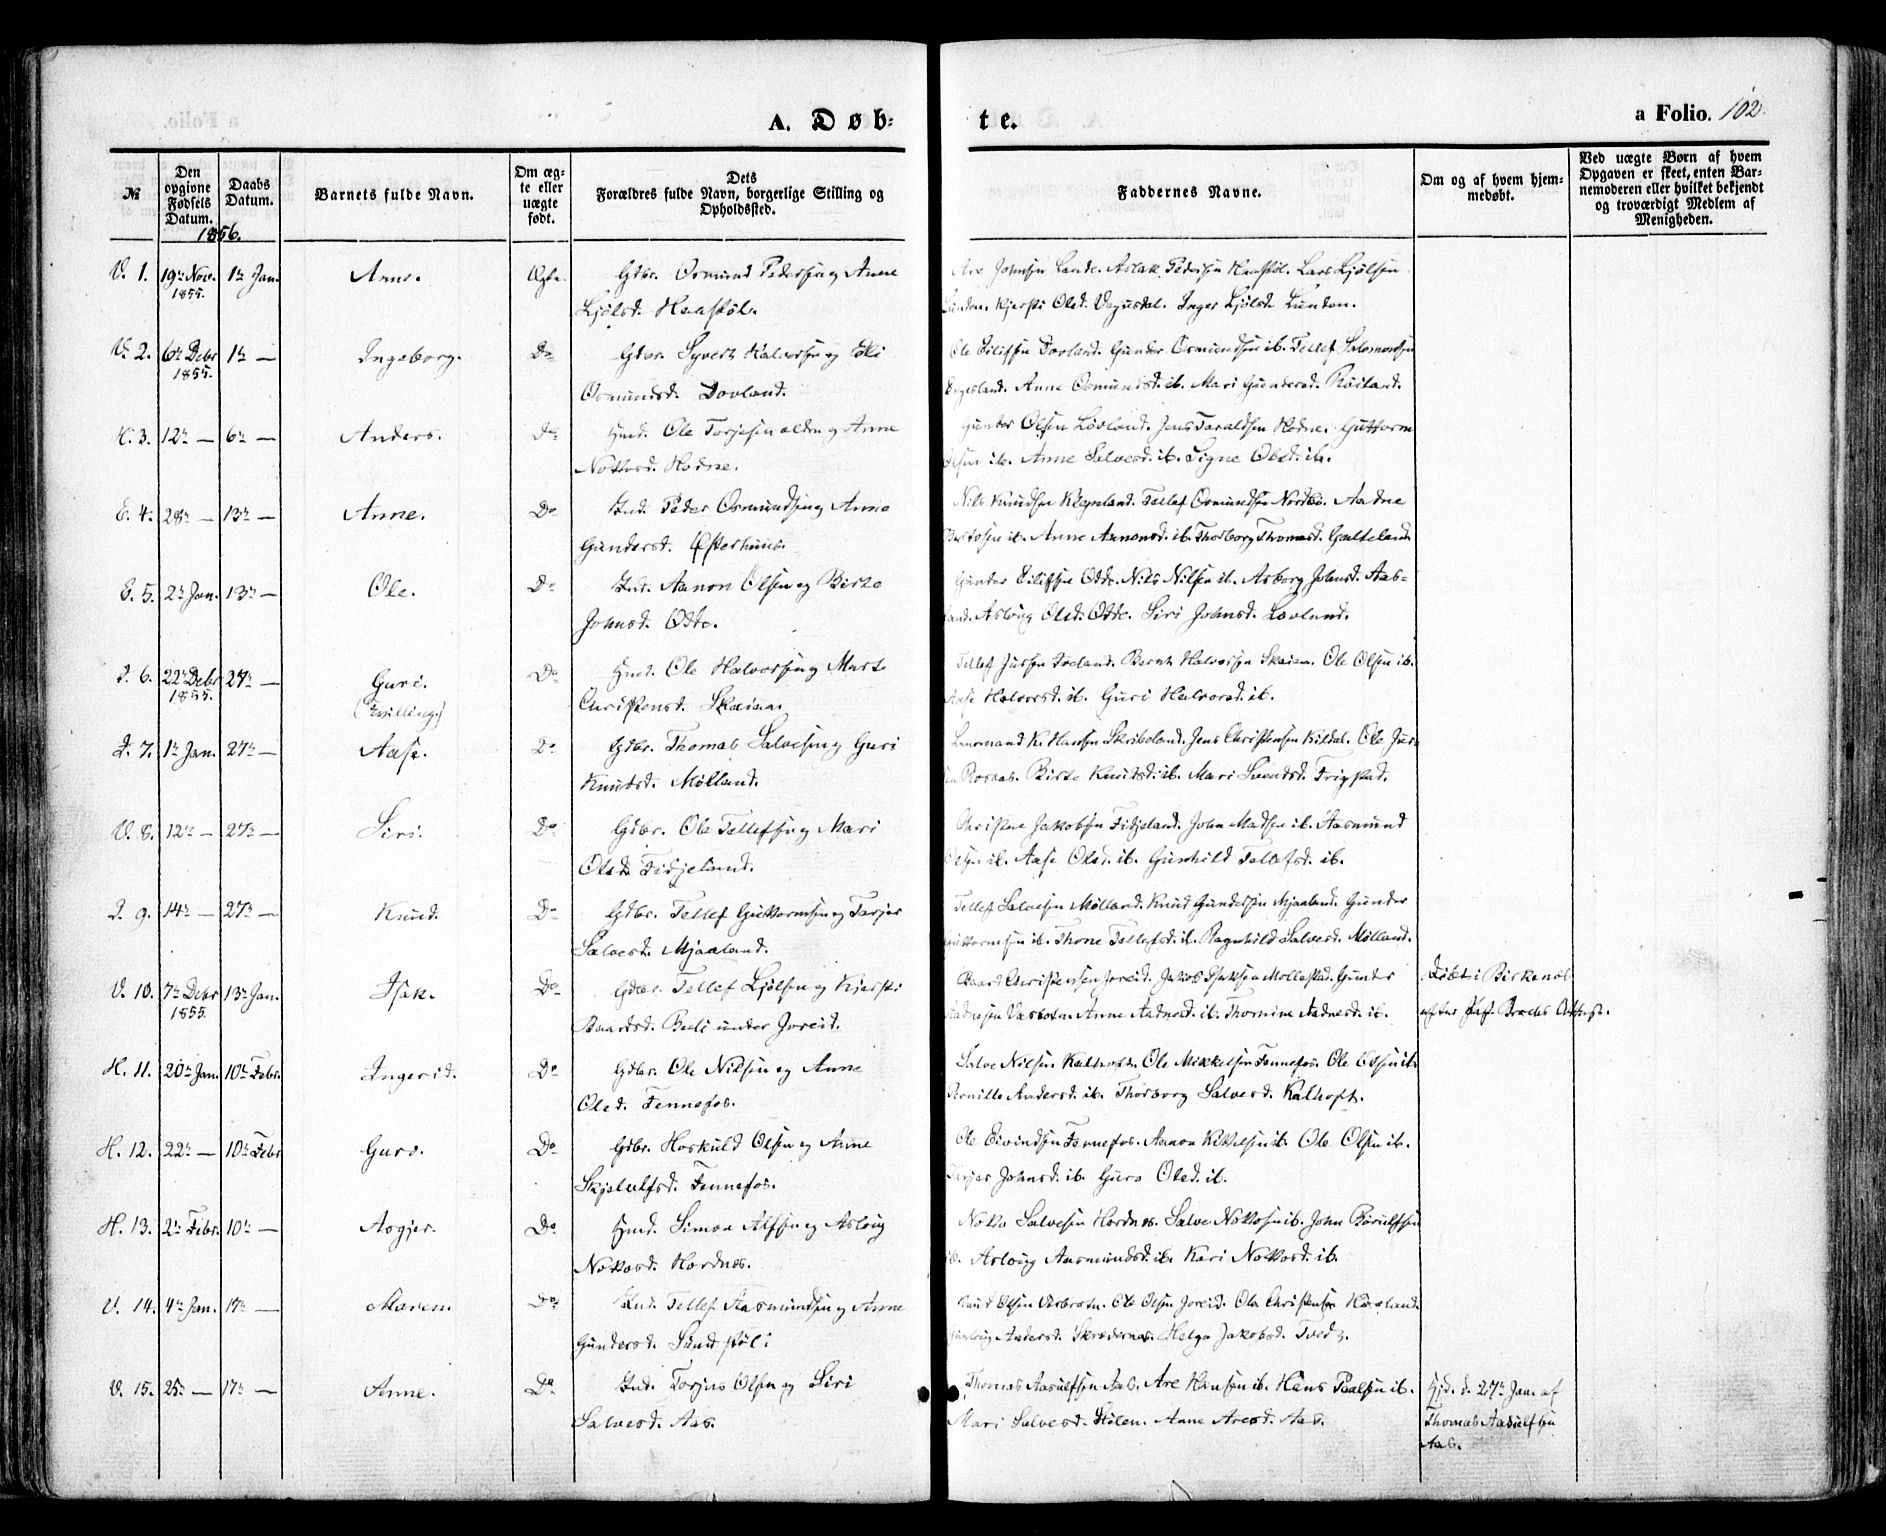 A. Døb-
te.
a Folio. 102.
№
Den opgivne Fødsels Datum.
Daabs Datum.
Barnets fulde Navn.
Om ægte eller uægte født.
Dets Forældres fulde Navn, borgerlige Stilling og Opholdssted.
Faddernes Navne.
Om og af hvem hjemmedøbt.
Ved uægte Børn af hvem Opgaven er skeet, enten Barnemoderen eller hvilket bekjendt og troværdigt Medlem af Menigheden.
1856.
V. 1. 19de Nov. 1855. 1ste Jan. Anne. Ægte. Gdbr. Osmund Pedersen og Anne
Ljølsd. Haastøl.
Are Johnsen Lande. Aslak Pedersen Haastøl. Lars Ljølsen
Lunden. Kjersti Olsd. Vegusdal. Inger Ljølsd. Lunden.
V. 2. 6te Debr 1855. 1ste — Ingeborg. Do Gdbr. Syvert Halvorsen og Eli
Osmundsd. Dovland.
Ole Eilifsen Dovland. Gunder Osmundsen ib. Tellef Salomonsen
Engesland. Anne Osmundsd. ib. Mari Gundersd. Røiland.
H. 3. 12te — 6te — Anders. Do Hmd. Ole Torjesen ældre og Anne
Nokosd. Hodne.
Gunder Olsen Løvland. Jens Taraldsen Hodne. Guttorm
Olsen ib. Anne Salvesd. ib. Signe Olsd. ib.
E. 4. 28de — 13de — Anne. Do Ind. Peder Osmundsen og Anne
Gundersd. Østerhuus.
Nils Knudsen Klepsland. Tellef Osmundsen Nordbø. Aadne
ib. Anne Aanonsd. ib. Thorborg Thomasd. Galteland.
E. 5. 2de Jan. 13de — Ole. Do Ind. Aanon Olsen og Birte
Johnsd. Odde.
Gunder Eilifsen Odde. Nils Nilsen ib. Asborg Johnsd. Aas-
land. Aslaug Olsd. Odde. Siri Johnsd. Lovland.
I. 6. 22de Debr 1855. 27de — Guri. (Tvilling.) Do Hmd. Ole Halvorsen og Marte
Christensd. Skaiaa.
Tellef Jursen Iveland. Bernt Halvorsen Skaiaa. Ole Olsen ib.
Aase Halvorsd. ib. Guri Halvorsd. ib.
I. 7. 1ste Jan. 27de — Aase. Do Gdbr. Thomas Salvesen og Guri
Knudsd. Mølland.
Lensmand K. Hansen Skribeland. Jens Christensen Kildal. Ole Jur-
sen Rosaas. Birte Knudsd. ib. Mari Svendsd. Frigstad.
V. 8. 12te — 27de — Siri. Do Gdbr. Ole Tellefsen og Mari
Olsd. Fidjeland.
Christen Jakobsen Fidjeland. John Madsen ib. Aasmund
Olsen ib. Aase Olsd. ib. Gunhild Tellefsd. ib.
I. 9. 14de — 27de — Knud. Do Gdbr. Tellef Guttormsen og Torjer
Salvesd. Mjaaland.
Tellef Salvesen Mølland. Knud Gundersen Mjaaland. Gunder
Guttormsen ib. Thone Tellefsd. ib. Ragnhild Salvesd. Mølland.
V. 10. 7de Debr 1855. 13de Jan. Isak. Do Gdbr. Tellef Ljølsen og Kjersti
Baardsd. under Joreid.
Baard Christensen Joreid. Jakob Isaksen Mollestad. Gunder
Aadnesen Væsbotn. Anne Aadnesd. ib. Thomine Aadnesd. ib.
Døbt i Birkenæs
efter
H. 11. 20de Jan. 10de Febr. Ingerid. Do Gdbr. Ole Nilsen og Anne
Olsd. Fennefos.
Salve Nilsen Kalhoft. Ole Mikkelsen Fennefos. Ole Olsen ib.
Pernille Andersd. ib. Thorborg Salvesd. Kalhoft.
H. 12. 22de — 10de Febr. Guro. Do Gdbr. Hoskuld Olsen og Anne
Skjelulfsd. Fennefos.
Ole Eivindsen Fennefos. Aanon Kittelsen ib. Ole Olsen ib.
Torjer Johnsd. ib. Guro Olsd. ib.
H. 13. 2de Febr. 10de — Asgjer. Do Hmd. Simon Alfsen og Aslaug
Nokosd. Hordnes.
Noko Salvesen Hordnes. Salve Nokosen ib. John Børulfsen
ib. Aslaug Aasmundsd. ib. Kari Nokosd. ib.
V. 14. 4de Jan. 17de — Maren. Do Ind. Tellef Aasmundsen og Anne
Gundersd. Sundstøl.
Knud Olsen Væsbotn. Ole Olsen Joreid. Ole Christensen Haaland.
Andersd. Skredernes. Helga Jakobsd. Tveds.
V. 15. 25de — 17de — Anne. Do Ind. Torjus Olsen og Siri
Salvesd. Aas.
Thomas Aasulfsen Aas. Are Hansen ib. Hans Paalsen ib.
Mari Salvesd. Hølen. Anne Aresd. Aas.
Hjd. d. 27de Jan. af
Thomas Aasulfsen
Aas.